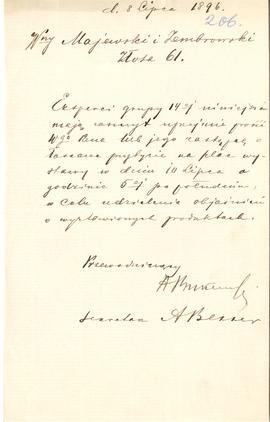 d. 8 Lipca 1896.
206.
Wny Majewski i Zembrowski
Złota 61.
Eksperci grupy 14ej niniejszem
mają zaszczyt uprzejmie prosić
Wgo Pana lub jego zastępcę o
łaskawe przybycie na plac wy
stawy w dniu 10 Lipca o
godzinie 5ej po południu,
w celu udzielenia objaśnień
o wystawionych produktach.
Przewodniczący
Sekretarz A Besser